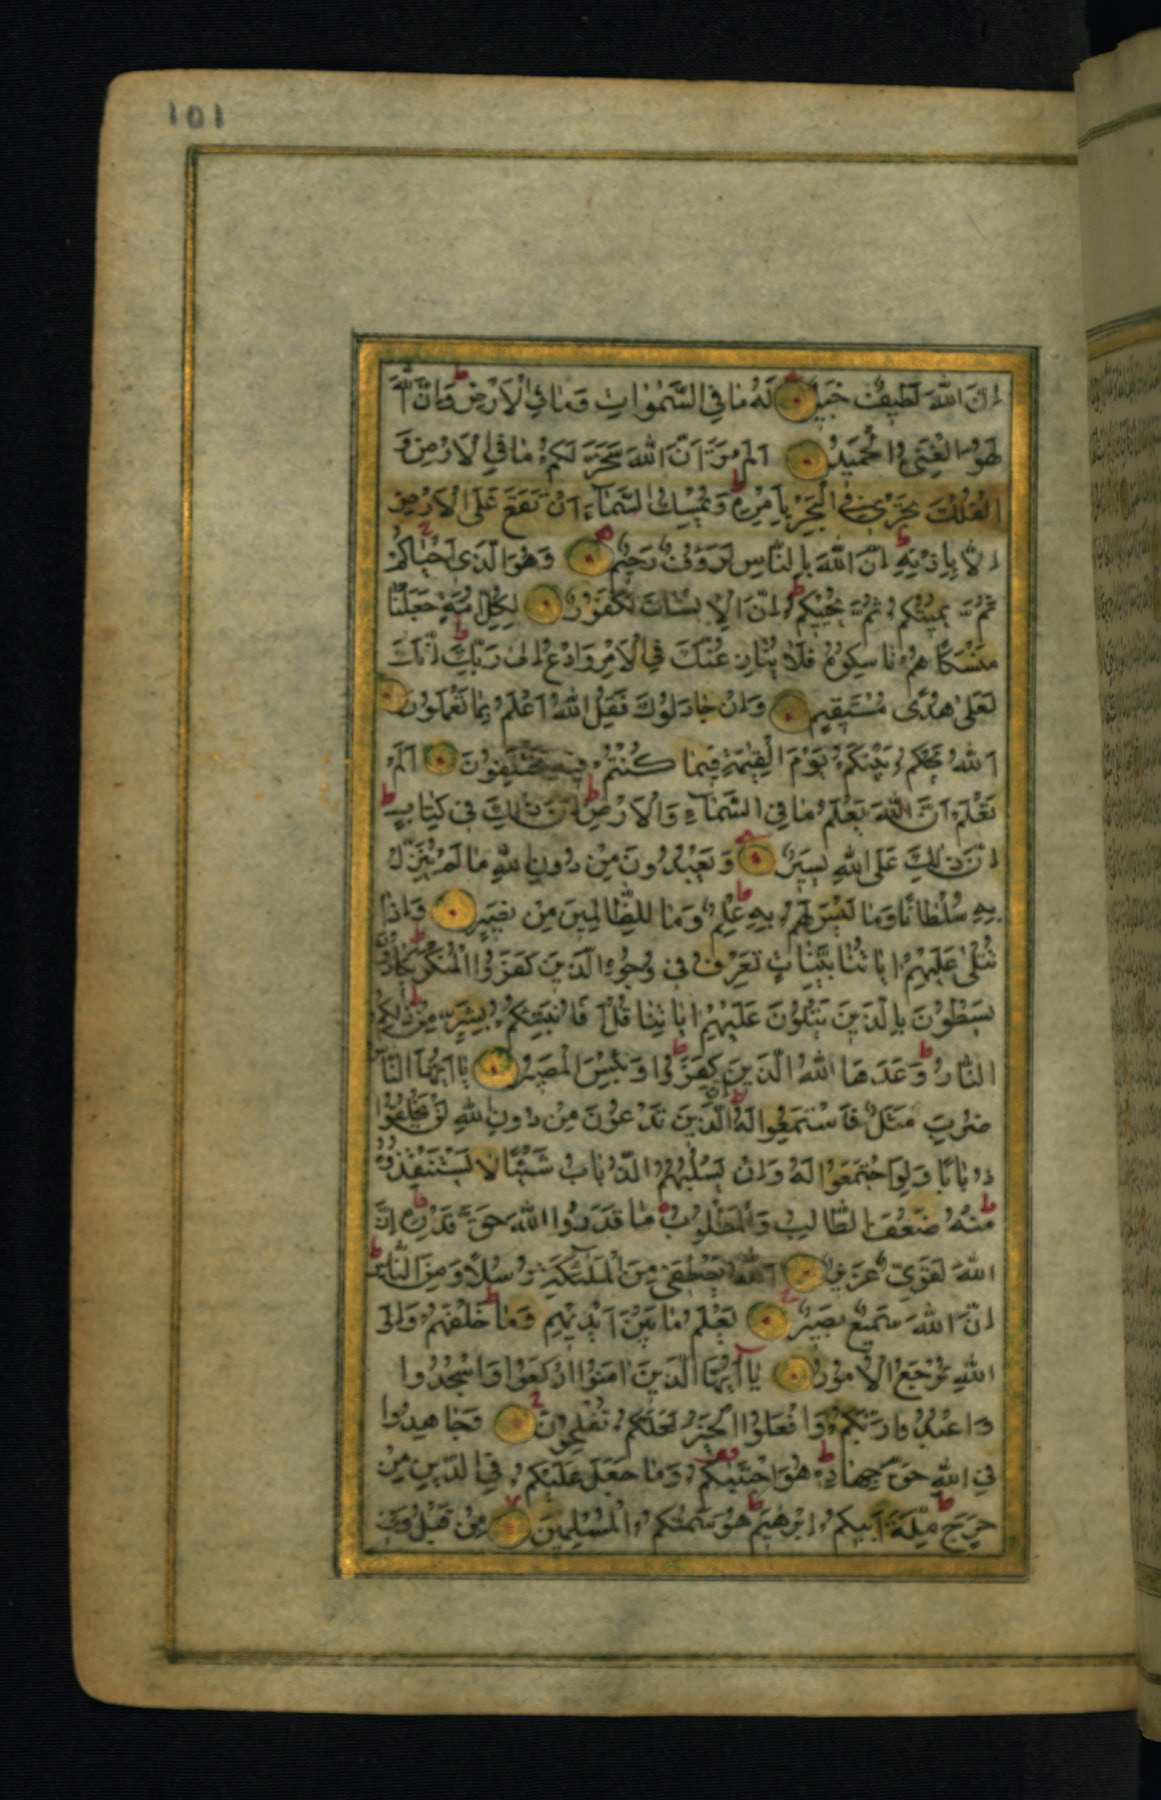 ١٥١
اِنَّ اللّٰهَ لَطِيفٌ خَبِيرٌ لَهُ مَا فِي السَّمٰوَاتِ وَمَا فِي الْاَرْضِ وَاِنَّ اللّٰهَ
لَهُوَ الْغَنِيُّ الْحَمِيدُ اَلَمْ تَرَ اَنَّ اللّٰهَ سَخَّرَ لَكُمْ مَا فِي الْاَرْضِ وَ
الْفُلْكَ تَجْرِي فِي الْبَحْرِ بِاَمْرِهِ وَيُمْسِكُ السَّمَاءَ اَنْ تَقَعَ عَلَى الْاَرْضِ
اِلَّا بِاِذْنِهِ اِنَّ اللّٰهَ بِالنَّاسِ لَرَؤُفٌ رَحِيمٌ وَهُوَ الَّذِي اَحْيَاكُمْ
ثُمَّ يُمِيتُكُمْ ثُمَّ يُحْيِيكُمْ اِنَّ الْاِنْسَانَ لَكَفُورٌ لِكُلِّ اُمَّةٍ جَعَلْنَا
مَنْسَكًا هُمْ نَاسِكُوهُ فَلَا يُنَازِعُنَّكَ فِي الْاَمْرِ وَادْعُ اِلٰى رَبِّكَ اِنَّكَ
لَعَلٰى هُدًى مُسْتَقِيمٍ وَاِنْ جَادَلُوكَ فَقُلِ اللّٰهُ اَعْلَمُ بِمَا تَعْمَلُونَ
اَللّٰهُ يَحْكُمُ بَيْنَكُمْ يَوْمَ الْقِيٰمَةِ فِيمَا كُنْتُمْ فِيهِ تَخْتَلِفُونَ اَلَمْ
تَعْلَمْ اَنَّ اللّٰهَ يَعْلَمُ مَا فِي السَّمَاءِ وَالْاَرْضِ اِنَّ ذٰلِكَ فِي كِتَابٍ
اِنَّ ذٰلِكَ عَلَى اللّٰهِ يَسِيرٌ وَيَعْبُدُونَ مِنْ دُونِ اللّٰهِ مَا لَمْ يُنَزِّلْ
بِهِ سُلْطَانًا وَمَا لَيْسَ لَهُمْ بِهِ عِلْمٌ وَمَا لِلظَّالِمِينَ مِنْ نَصِيرٍ وَاِذَا
تُتْلٰى عَلَيْهِمْ اٰيَاتُنَا بَيِّنَاتٍ تَعْرِفُ فِي وُجُوهِ الَّذِينَ كَفَرُوا الْمُنْكَرَ يَكَادُونَ
يَسْطُونَ بِالَّذِينَ يَتْلُونَ عَلَيْهِمْ اٰيَاتِنَا قُلْ اَفَاُنَبِّئُكُمْ بِشَرٍّ مِنْ ذٰلِكُمُ
النَّارُ وَعَدَهَا اللّٰهُ الَّذِينَ كَفَرُوا وَبِئْسَ الْمَصِيرُ يَا اَيُّهَا النَّاسُ
ضُرِبَ مَثَلٌ فَاسْتَمِعُوا لَهُ اِنَّ الَّذِينَ تَدْعُونَ مِنْ دُونِ اللّٰهِ لَنْ يَخْلُقُوا
ذُبَابًا وَلَوِ اجْتَمَعُوا لَهُ وَاِنْ يَسْلُبْهُمُ الذُّبَابُ شَيْئًا لَا يَسْتَنْقِذُوهُ
مِنْهُ ضَعُفَ الطَّالِبُ وَالْمَطْلُوبُ مَا قَدَرُوا اللّٰهَ حَقَّ قَدْرِهِ اِنَّ
اللّٰهَ لَقَوِيٌّ عَزِيزٌ اَللّٰهُ يَصْطَفِي مِنَ الْمَلٰئِكَةِ رُسُلًا وَمِنَ النَّاسِ
اِنَّ اللّٰهَ سَمِيعٌ بَصِيرٌ يَعْلَمُ مَا بَيْنَ اَيْدِيهِمْ وَمَا خَلْفَهُمْ وَاِلَى
اللّٰهِ تُرْجَعُ الْاُمُورُ يَا اَيُّهَا الَّذِينَ اٰمَنُوا ارْكَعُوا وَاسْجُدُوا
وَاعْبُدُوا رَبَّكُمْ وَافْعَلُوا الْخَيْرَ لَعَلَّكُمْ تُفْلِحُونَ وَجَاهِدُوا
فِي اللّٰهِ حَقَّ جِهَادِهِ هُوَ اجْتَبٰيكُمْ وَمَا جَعَلَ عَلَيْكُمْ فِي الدِّينِ مِنْ
حَرَجٍ مِلَّةَ اَبِيكُمْ اِبْرٰهِيمَ هُوَ سَمّٰيكُمُ الْمُسْلِمِينَ مِنْ قَبْلُ وَفِي